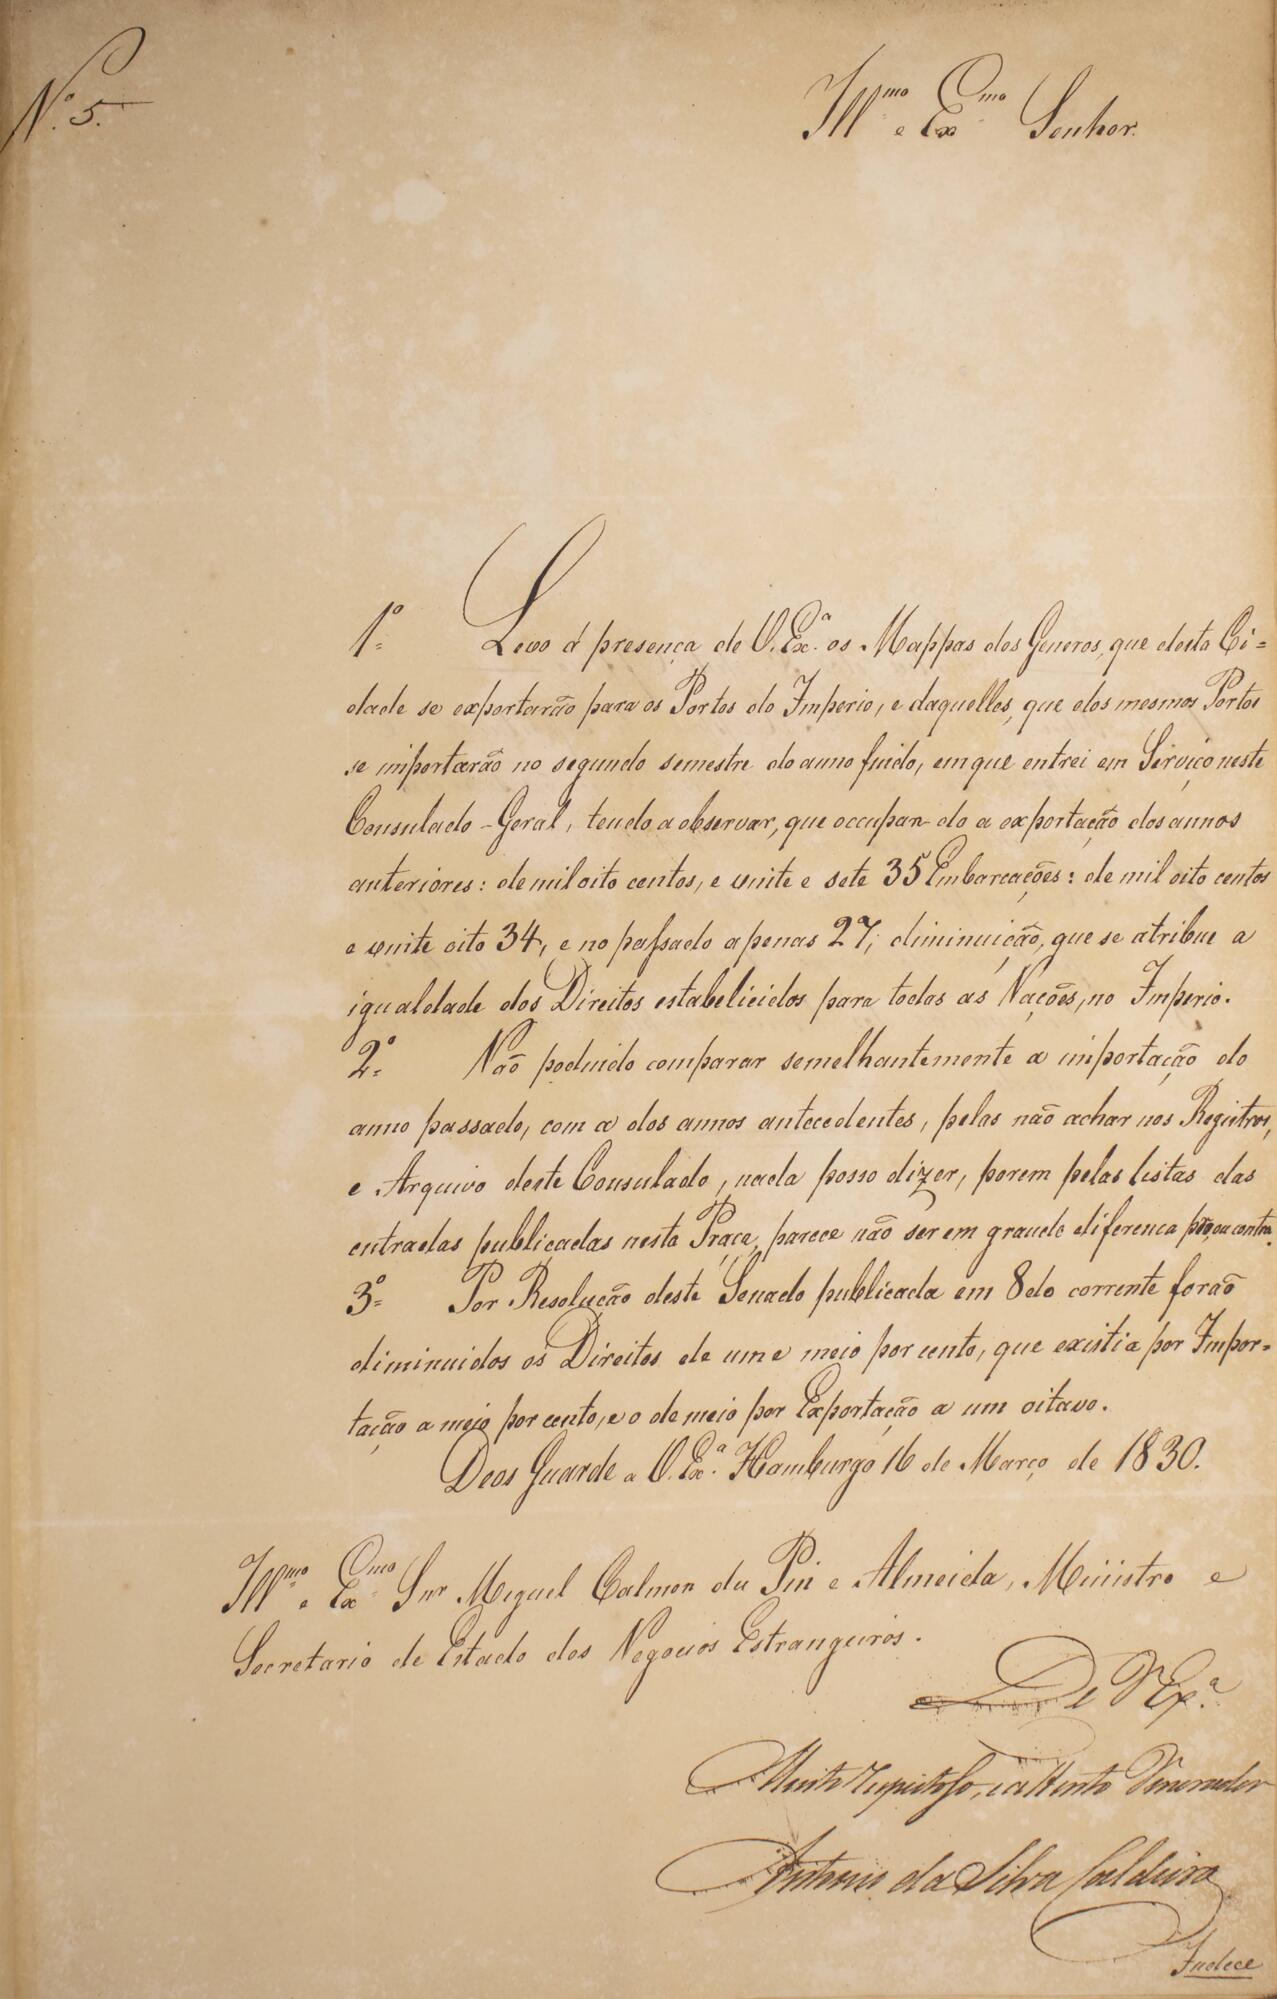 N.º 5.
Ill.mo e Ex.mo Senhor.
1.º Levo á presença de V. Ex.ª os Mappas dos Generos, que desta Ci=
dade se exportarão para os Portos do Imperio, e daquelles, que dos mesmos Portos
se importarão no segundo semestre do anno findo, em que entrei em Serviço neste
Consulado-Geral, tendo a observar, que occupan-do a exportação dos annos
anteriores: de mil oito centos, e vinte e sete 35 Embarcações: de mil oito centos
e vinte oito 34, e no passado apenas 27, diminuição, que se atribue a
igualdade dos Direitos estabelicidos para todas as Nações, no Imperio.
2.º Não podendo comparar semelhantemente a importação do
anno passado, com a dos annos antecedentes, pelas não achar nos Registros,
e Arquivo deste Consulado, nada posso dizer, porem pelas listas das
entradas publicadas nesta Praça, parece não ser em grande diferenca pro, ou contra.
3.º Por Resolução deste Senado publicada em 8 do corrente forão
diminuidos os Direitos de um e meio por cento, que existia por Impor=
tação a meio por cento, e o de meio por Exportação a um oitavo.
Deos Guarde a V. Ex.ª Hamburgo 16 de Março de 1830.
Ill.mo e Ex.mo Snr Miguel Calmon du Pin e Almeida, Ministro e
Secretario de Estado dos Negocios Estrangeiros.
De V Ex.ª
Muito respeitoso, e attento Venerador
Antonio da Silva Caldeira
Indece